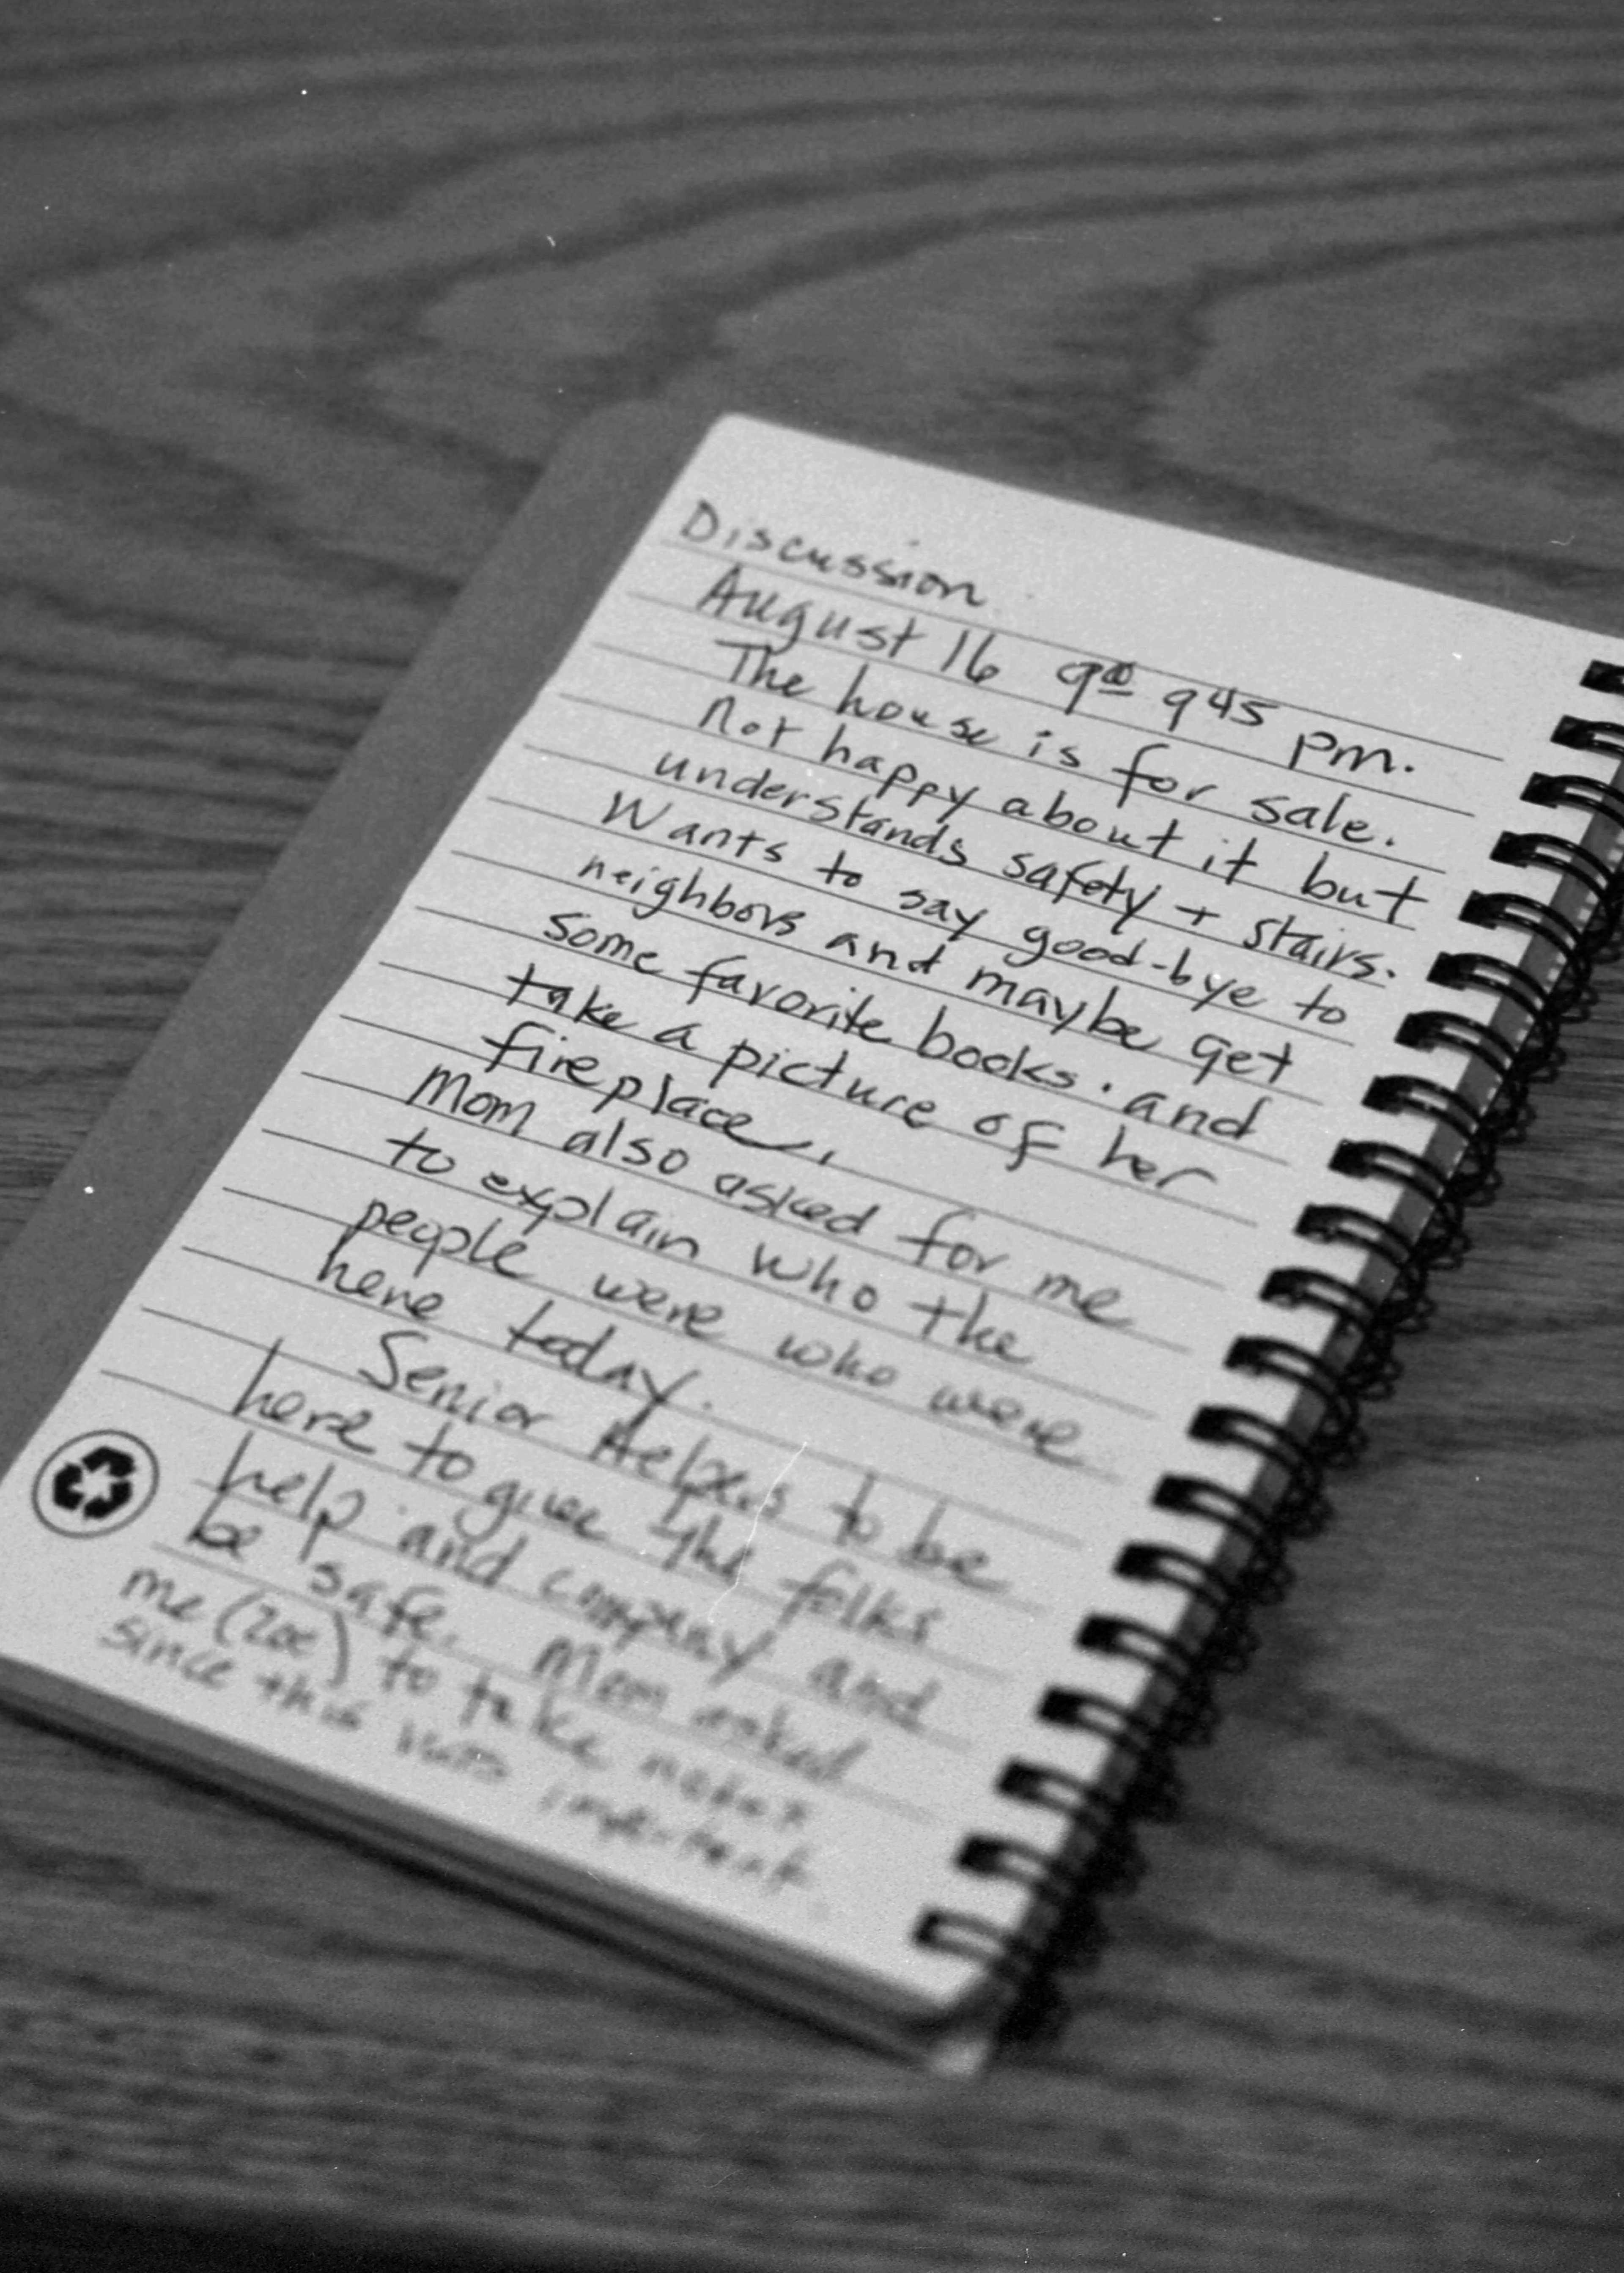 Discussion
August 16 9⁰⁰ 945 pm.
The house is for sale.
Not happy about it but
understands safety + stairs.
Wants to say good-bye to
neighbors and maybe get
some favorite books. and
take a picture of her
fireplace.
Mom also asked for me
to explain who the
people were who were
here today.
Senior Helpers to be
here to give the folks
help and company and
be safe. Mom asked
me (Zoe) to take notes
since this was important.